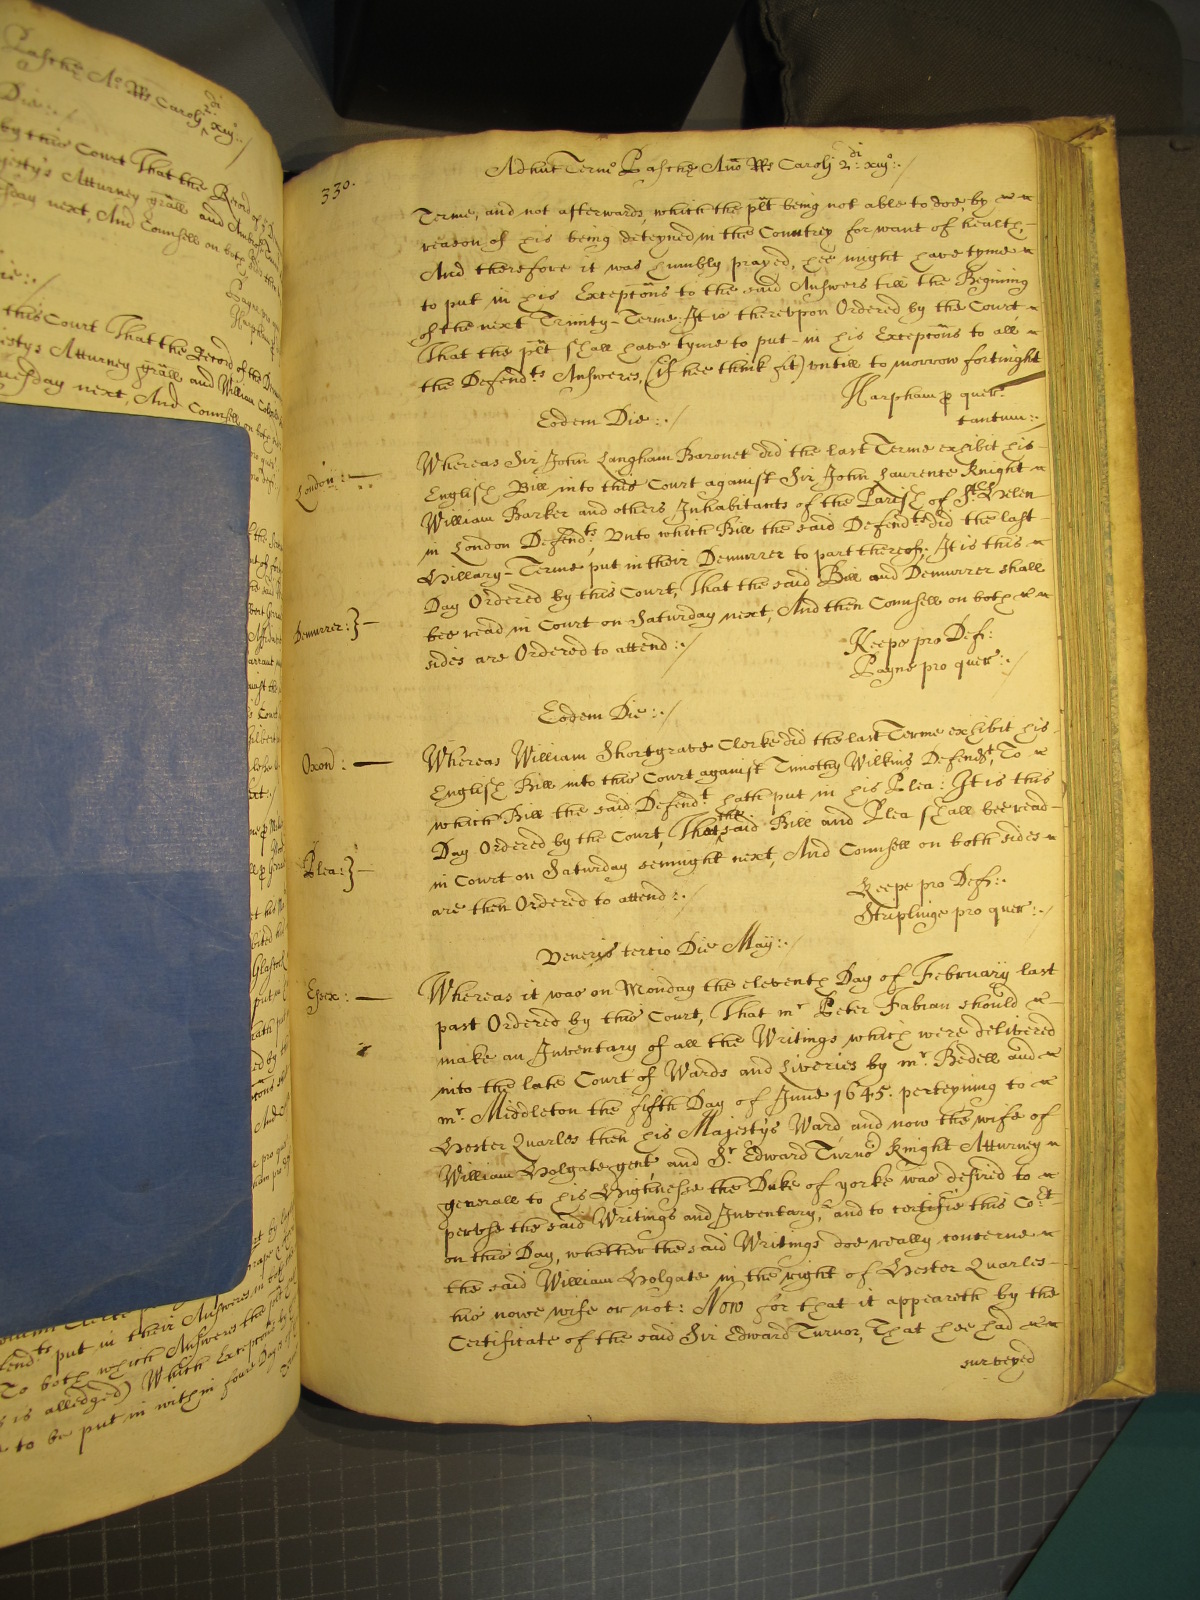 Paschæ Ao Rs Caroli 2di xiijo:/
Die:/
by this Court That the Record of
Attorney grãll and
sday next, And Counsell on both
Die:/
this Court That the Record of the
Majestys Atturney grãll and William
Tuesday next, And Counsell on both
330.
Adhuc Termo Paschæ Anno Rs Caroli 2di: xiijo:./
Terme, and not afterwards, which the plt being not able to doe by
reason of his being deteyned in the Countrey for want of health,
And therefore it was humbly prayed, hee might have tyme
to put in his Exceptons to the said Answers till the Begining
of the next Trinity-Terme: It is therevpon Ordered by the Court
That the plt shall have tyme to put in his Exceptons to all
the Defendts Answeres, (if hee think fit) vntill to morrow fortinght
Harpham p quer:
tantum:/
Eodem Die:./
London:
Whereas Sir John Langham Baronet did the last Terme exhibit his
English Bill into this Court against Sir John Laurence Knight
William Barker and others Inhabitants of the Parish of St. Helen
in London Defendts, Vnto which Bill the said Defendts did the last
Hillary-Terme put in their Demurrer to part thereof: It is this
Day Ordered by this Court, That the said Bill and Demurrer shall
Demurrer:}
bee read in Court on Saturday next, And then Counsell on both
sides are Ordered to attend:./
Keepe pro Def:
Payne pro quer:./
Eodem Die:./
Oxon:
Whereas William Shortgrave Clerke did the last Terme exhibit his
English Bill into this Court against Timothy Wilkins Defendt, To
which Bill the said Defendt hath put in his Plea: It is this
Day Ordered by the Court, That the said Bill and Plea shall bee read
Plea:}
in Court on Saturday sennight next, And Counsell on both sides
are then Ordered to attend:./
Keepe pro Def:.
Striplinge pro quer:./
Veneris tertio Die May:./
Essex:
Whereas it was on Monday the eleventh Day of February last
past Ordered by this Court, That mr Peter Fabian should
make an Inventary of all the Writings which were delivered
into the late Court of Wards and Liveries by mr. Bedell and
mr. Middleton the fifth Day of June 1645. perteyning to
Hester Quarles then his Majestys Ward and now the wife of
William Holgate gent, and Sr. Edward Turnor Knight Atturney
generall to his Highnesse the Duke of yorke was desired to
pervse the said Writings and Inventary, and to certifie this Cort
on this Day, whether the said Writings doe really concerne
the said William Holgate in the right of Hester Quarles
his nowe wife or not: Now for that it appeareth by the
Certificate of the said Sir Edward Turnor, That hee had
surveyed
put in their Answeres, in
To both which Answers the
is alledged) Which Exceptons
to be put in within foure Days